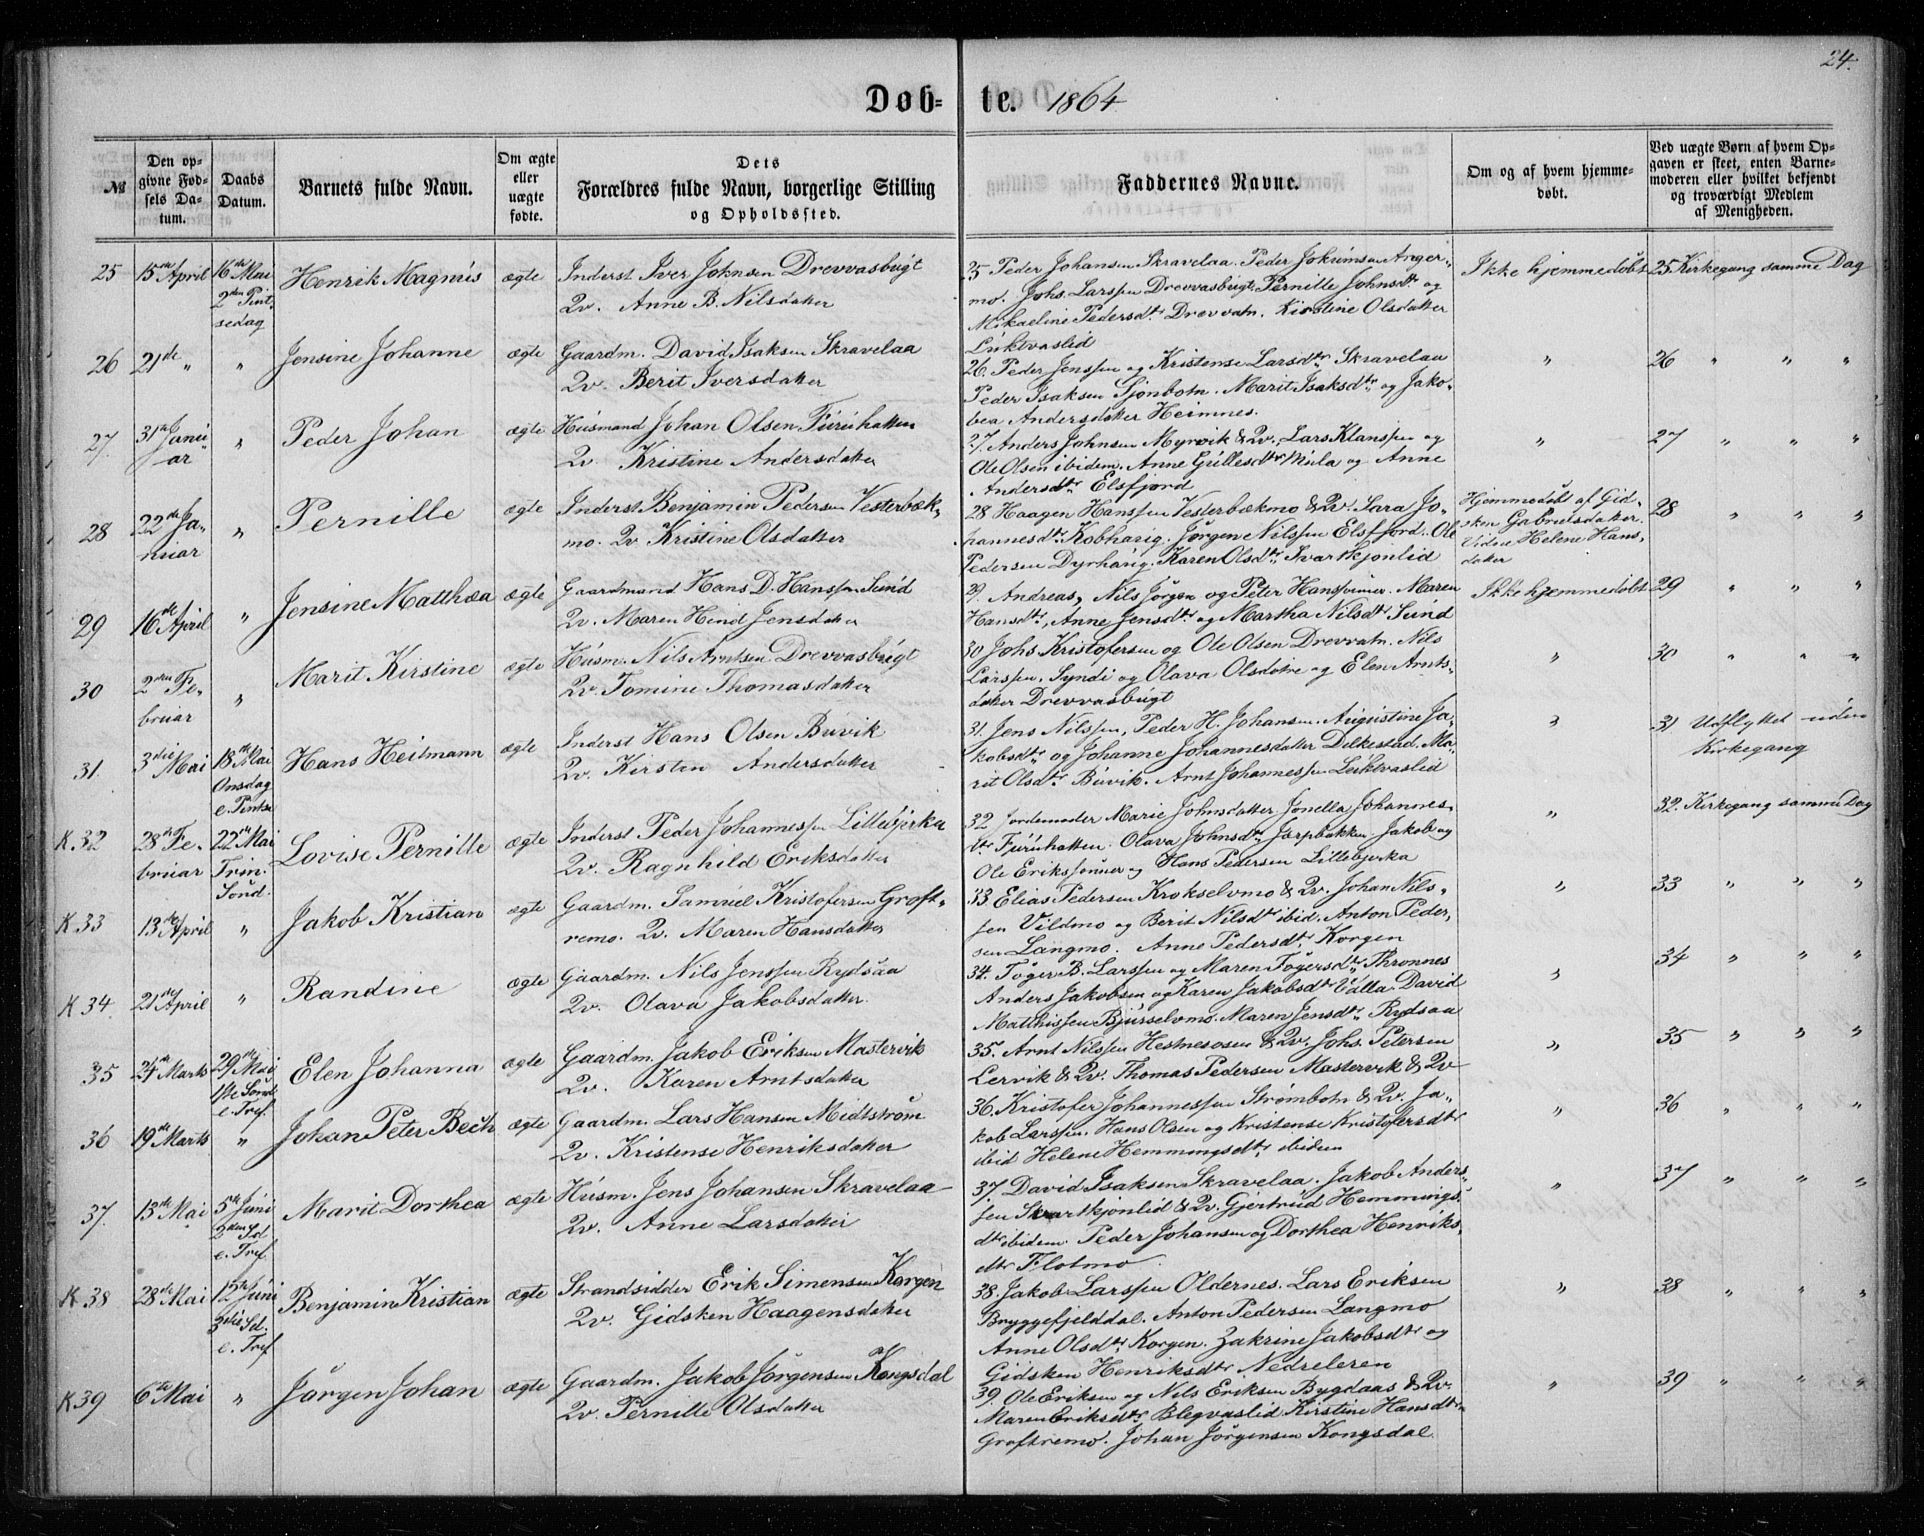 24.
Døb- te. 1864
№
Den op-
givne Fød-
sels Da-
tum.
Daabs
Datum.
Barnets fulde Navn.
Om ægte
eller
uægte
fødte.
Dets
Forældres fulde Navn, borgerlige Stilling
og Opholdssted.
Faddernes Navne.
Om og af hvem hjemme-
døbt.
Ved uægte Børn af hvem Op-
gaven er skeet, enten Barne-
moderen eller hvilket bekjendt
og troværdigt Medlem
af Menigheden.
25 15de April 16de Mai 2den Pint-
sedag
Henrik Magnus ægte Inderst Iver Johnsen Drevvasbugt
Qv. Anne B. Nilsdatter
25 Peder Johansen Skravelaa. Peder Jokumsen Anger-
mo. Johs. Larssen Drevvasbugt. Pernille Johnsdtr og
Mikaeline Pedersdtr Drevvatn. Kirstine Olsdatter
Luktvaslid
Ikke hjemmedøbt 25 Kirkegang samme Dag
26 21de " " Jensine Johanne ægte Gaardm. David Isaksen Skravelaa
Qv. Berit Iversdatter
26. Peder Jenssen og Kristense Larsdtr Skravelaa
Peder Isaksen Sjonbotn. Marit Isaksdtr og Jako-
bea Andersdatter Heimnes.
" 26 " " "
27. 31te Janu-
ar " Peder Johan ægte Husmand Johan Olsen Furuhatten
Qv. Kristine Andersdatter
27. Anders Johnsen Myrvik & Qv. Lars Klanssen og
Ole Olsen ibidem. Anne Gullesdtr Mula og Anne
Andersdtr Elsfjord
" 27 " " "
28 22de Ja-
nuar " Pernille ægte Inderst Benjamin Pedersen Vesterbæk-
mo. Qv. Kristine Olsdatter
28 Haagen Hanssen Vesterbækmo & Qv. Sara Jo-
hannesdtr Kobhaug. Jørgen Nilssen Elsfjord. Ole
Pedersen Dyrhaug. Karen Olsdtr Svartkjønlid
Hjemmedøbt af Gid-
sken Gabrielsdatter.
Vidne Helene Hans-
datter
28 " " "
29 16de April " Jensine Matthea ægte Gaardmand Hans D. Hanssen Sund
Qv. Maren Hind Jensdatter
29. Andreas, Nils Jørgen og Peter Hanssønner. Maren
Hansdtr, Anne Jensdtr og Martha Nilsdtr Sund
Ikke hjemmedøbt 29 " " "
30 2den Fe-
bruar " Marit Kirstine ægte Husm. Nils Arntsen Drevvasbugt
Qv. Tomine Thomasdatter
30 Johs Kristofersen og Ole Olsen Drevvatn. Nils
Larssen. Syndi og Olava Olsdøtre og Elen Arnts-
datter Drevvasbugt
" 30 " " "
31. 3die Mai 18de Mai
Onsdag
e. Pintse
Hans Heitmann ægte Inderst Hans Olsen Buvik
Qv. Kersten Andersdatter
31. Jens Nilssen, Peder H. Johansen. Augustine Ja-
kobsdtr og Johanne Johannesdatter Dilkestad. Ma-
rit Olsdtr Buvik. Arnt Johannessen Luktvaslid
" 31 Udflyttet uden
Kirkegang
K 32 28de Fe-
bruar 22de Mai
Trin.
Sønd.
Lovise Pernille ægte Inderst Peder Johannessen Lillebjerka
Qv. Ragnhild Eriksdatter
32 Jordemoder Marie Johnsdatter Jonella Johannes-
dtr Furuhatten. Olava Johnsdtr Jarpbakken. Jakob og
Ole Erikssønner og Hans Pedersen Lillebjerka
" 32. Kirkegang samme Dag
K 33 13de April " Jakob Kristian ægte Gaardm. Samuel Kristofersen Groft-
remo. Qv. Maren Hansdatter
33 Elias Pedersen Krokselvmo & Qv. Johan Nils-
sen Vildmo og Berit Nilsdtr ibid. Anton Peder-
sen Langmo. Anne Pedersdtr Korgen
" 33 " " "
K 34. 21de April " Randine ægte Gaardm. Nils Jenssen Rydsaa
Qv. Olava Jakobsdatter.
34. Tøger B. Larssen og Maren Tøgersdtr Thronnes
Anders Jakobsen og Karen Jakobsdtr Valla. David
Matthissen Bjurselvmo. Maren Jensdtr Rydsaa
" 34 " " "
35 24de Marts 29de Mai
1ste Sønd.
e. Tref.
Elen Johanna ægte Gaardm. Jakob Eriksen Mastervik
Qv. Karen Arntsdatter
35. Arnt Nilssen Hestnesosen & Qv. Johs. Petersen
Lervik & Qv. Thomas Pedersen Mastervik & Qv
" 35 " " "
36 19de Marts " Johan Peter Bech ægte Gaardm. Lars Hansen Midtstrøm
Qv. Kristense Henriksdatter
36. Kristofer Johannessen Strømbotn & Qv. Ja-
kob Larssen. Hans Olsen og Kristense Kristofersdtr
ibid Helene Hemmingsdtr ibidem
" 36 " " "
37. 13de Mai 5te Juni
2den Sd
e. Tref.
Marit Dorthea ægte Husm. Jens Johansen Skravelaa
Qv. Anne Larsdatter
37. David Isaksen Skravelaa. Jakob Anders-
sen Svartkjønlid & Qv. Gjertrud Hemmings-
dtr ibidem. Peder Johansen og Dorthea Henriks-
dtr Flotmo.
" 37 " " "
K 38 28de Mai 12te Juni
3die Sd.
e. Tref
Benjamin Kristian ægte Strandsidder Erik Simensen Korgen
Qv. Gidsken Haagensdatter
38. Jakob Larssen Oldernes. Lars Eriksen
Bryggefjelddal. Anton Pedersen Langmo
Anne Olsdtr Korgen. Zakrine Jakobsdtr og
Gidsken Henriksdtr Nedreleren
" 38 " " "
K 39 6te Mai " Jørgen Johan ægte Gaardm. Jakob Jørgensen Kongsdal
Qv. Pernille Olsdatter
39. Ole Eriksen og Nils Eriksen Bygdaas & Qv.
Maren Eriksdtr Blegvaslid Kirstine Hansdtr
Groftremo. Johan Jørgensen Kongsdal.
" 39 " " "